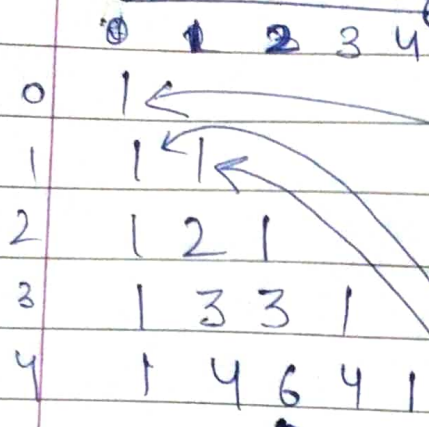 0 1 2 3 4
0 1
1 1 1
2 1 2 1
3 1 3 3 1
4 1 4 6 4 1